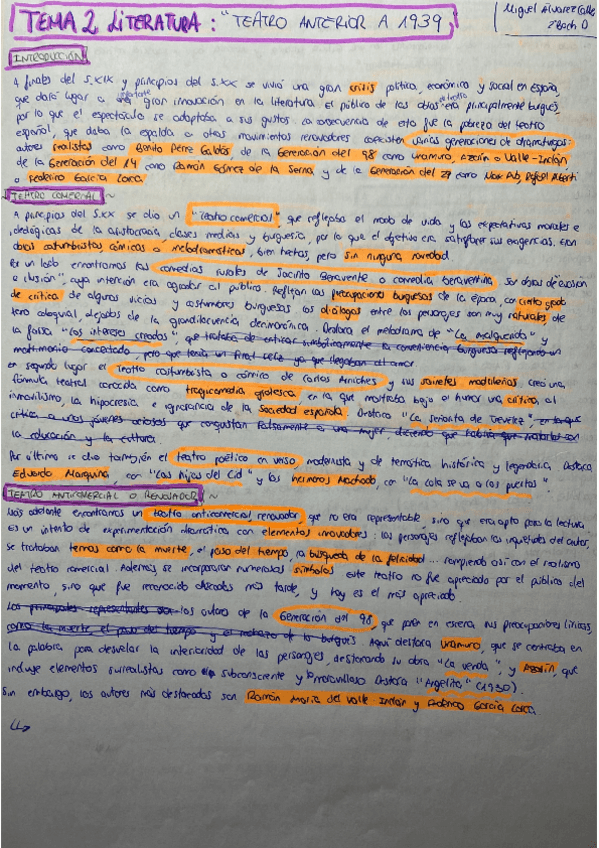 TEMA 2 LITERATURA: "TEATRO ANTERIOR A 1939"
Miguel Álvarez
2 Bach D
INTRODUCCIÓN
A finales del S.XIX y principios del S.XX se vivió una gran crisis política, económica y social en España,
que daría lugar a una importante gran innovación en la literatura. El público de las obras de teatro era principalmente burgués,
por lo que el espectáculo se adaptaba a sus gustos. Consecuencia de esto fue la pobreza del teatro
español, que daba la espalda a otros movimientos renovadores. Coexisten varias generaciones de dramaturgos:
autores realistas como Benito Pérez Galdós, de la Generación del 98 como Unamuno, Azorín o Valle-Inclán,
de la Generación del 14 como Ramón Gómez de la Serna, y de la Generación del 27 como Max Aub, Rafael Alberti
o Federico García Lorca.
TEATRO COMERCIAL
A principios del S.XX se dio un "teatro comercial", que reflejaba el modo de vida y las expectativas morales e
ideológicas de la aristocracia, clases medias y burguesía, por lo que el objetivo era satisfacer sus exigencias. Eran
obras costumbristas, cómicas o melodramáticas, bien hechas, pero sin ninguna novedad.
Por un lado encontramos las comedias rurales de Jacinto Benavente o comedia benaventina. Son obras de evasión
e ilusión", cuya intención era agradar al público. Reflejan las preocupaciones burguesas de la época, con cierto grado
de crítica de algunos vicios y costumbres burguesas. Los diálogos entre los personajes son muy naturales, de
tono coloquial, alejados de la grandilocuencia decimonónica. Destaca el melodrama de "La malquerida" y
la farsa "Los intereses creados", que trataba de criticar simbólicamente la conveniencia burguesa reflejando un
matrimonio concertado, pero que tenía un final feliz ya que llegaban al amor.
En segundo lugar el teatro costumbrista o cómico de Carlos Arniches y sus sainetes madrileños. Creó una
fórmula teatral conocida como tragicomedia grotesca, en la que mostraba bajo el humor una crítica, al
inmovilismo, la hipocresía e ignorancia de la sociedad española. Destaca "La señorita de Trevélez", en la que
critica a unos jóvenes ociosos que conquistan falsamente a una mujer, diciendo que
la educación y la cultura.
Por último se dio también el teatro poético en verso, modernista y de temática histórica y legendaria. Destaca
Eduardo Marquina, con "Las hijas del Cid" y los hermanos Machado, con "La Lola se va a los puertos".
TEATRO ANTICOMERCIAL O RENOVADOR
Más adelante encontramos un teatro anticomercial, renovador, que no era representable, sino que era apto para la lectura.
Es un intento de experimentación dramática con elementos innovadores: los personajes reflejaban las inquietudes del autor,
se trataban temas como la muerte, el paso del tiempo, la búsqueda de la felicidad... rompiendo así con el realismo
del teatro comercial. Además, se incorporaron numerosos símbolos. Este teatro no fue apreciado por el público del
momento, sino que fue reconocido décadas más tarde, y hoy es el más apreciado.
Los principales representantes son los autores de la Generación del 98, que ponen en escena sus preocupaciones
como la muerte, el paso del tiempo y el rechazo de lo burgués. Aquí destaca Unamuno, que se centraba en
la palabra para desvelar la interioridad de los personajes, destacando su obra "La venda", y Azorín, que
incluye elementos surrealistas como el subconsciente y lo maravilloso. Destaca "Angelita" (1930).
Sin embargo, los autores más destacados son Ramón María del Valle-Inclán y Federico García Lorca.